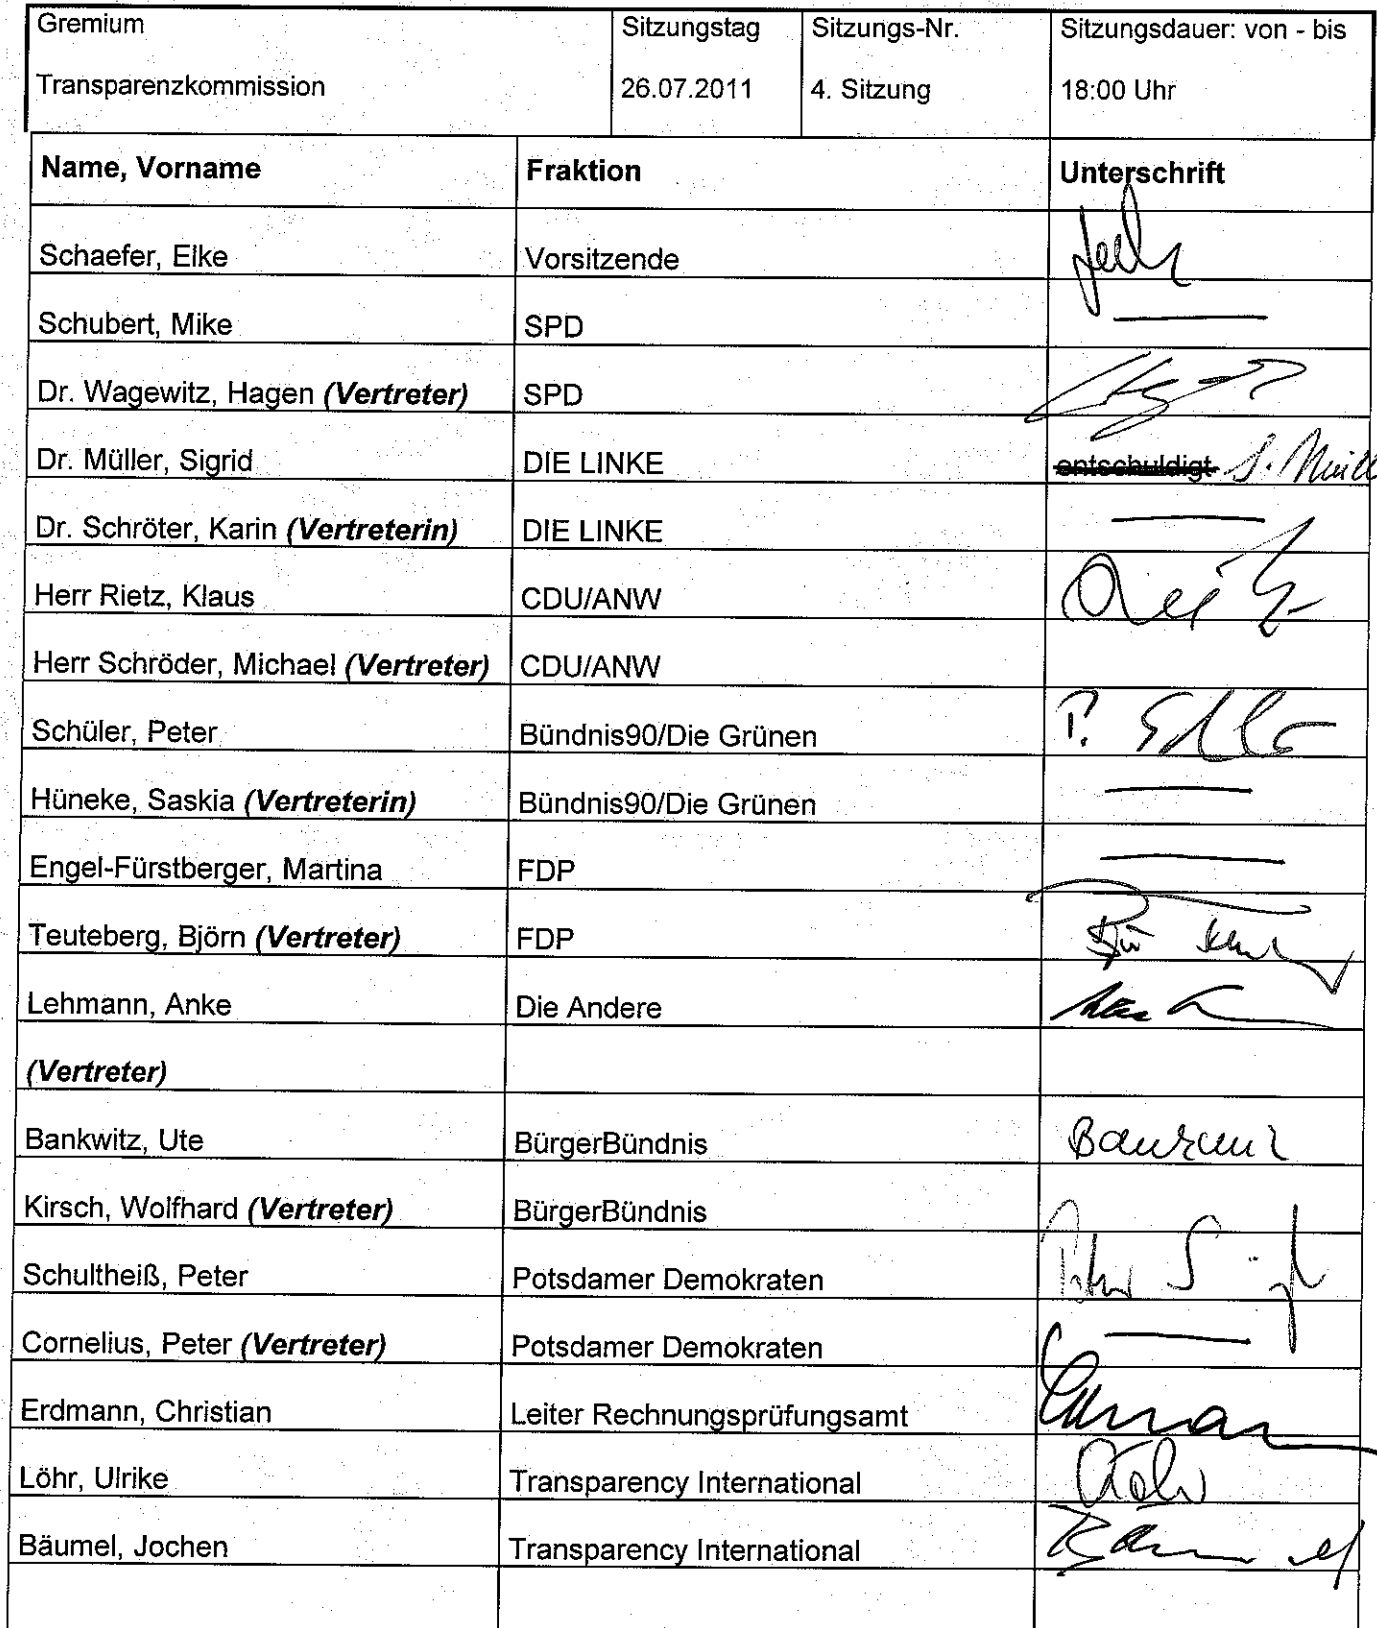 Gremium Sitzungstag Sitzungs-Nr. Sitzungsdauer: von - bis
Transparenzkommission 26.07.2011 4. Sitzung 18:00 Uhr
Name, Vorname Fraktion Unterschrift
Schaefer, Elke Vorsitzende
Schubert, Mike SPD
Dr. Wagewitz, Hagen (Vertreter) SPD
Dr. Müller, Sigrid DIE LINKE entschuldigt S. Müll
Dr. Schröter, Karin (Vertreterin) DIE LINKE
Herr Rietz, Klaus CDU/ANW
Herr Schröder, Michael (Vertreter) CDU/ANW
Schüler, Peter Bündnis90/Die Grünen
Hüneke, Saskia (Vertreterin) Bündnis90/Die Grünen
Engel-Fürstberger, Martina FDP
Teuteberg, Björn (Vertreter) FDP
Lehmann, Anke Die Andere
(Vertreter)
Bankwitz, Ute BürgerBündnis
Kirsch, Wolfhard (Vertreter) BürgerBündnis
Schultheiß, Peter Potsdamer Demokraten
Cornelius, Peter (Vertreter) Potsdamer Demokraten
Erdmann, Christian Leiter Rechnungsprüfungsamt
Löhr, Ulrike Transparency International
Bäumel, Jochen Transparency International